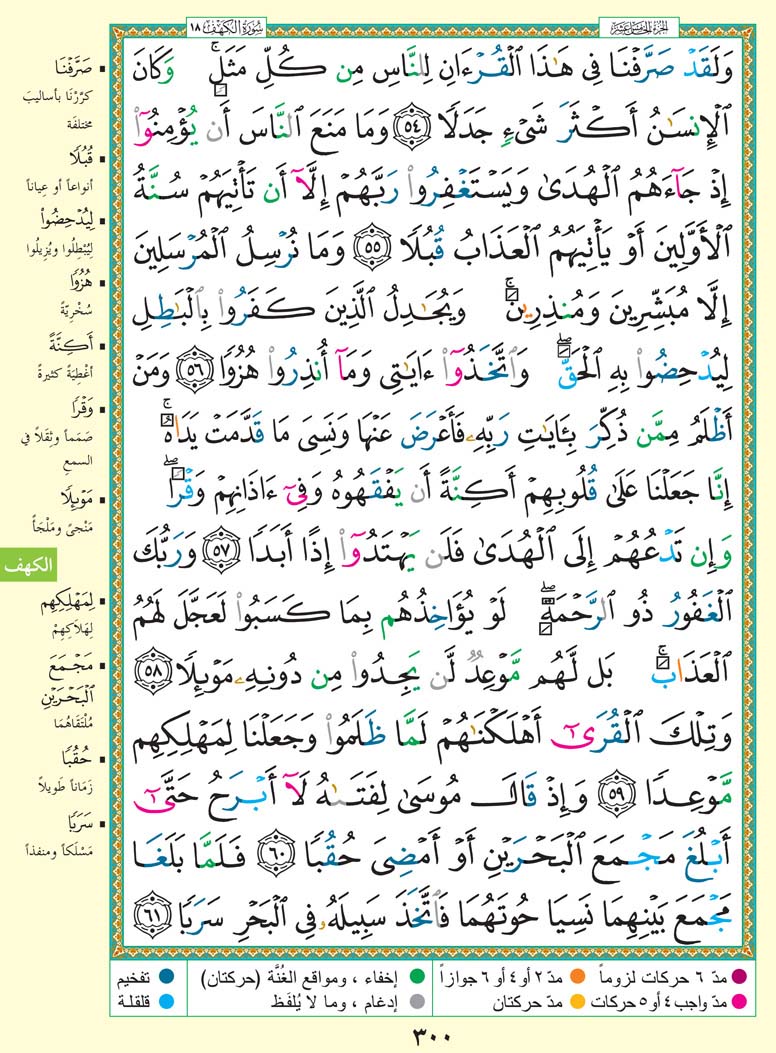 الجزء الخامس عشر
سُورَةُ الكَهْفِ ١٨
وَلَقَدْ صَرَّفْنَا فِى هَٰذَا ٱلْقُرْءَانِ لِلنَّاسِ مِن كُلِّ مَثَلٍۢ ۚ وَكَانَ
ٱلْإِنسَٰنُ أَكْثَرَ شَىْءٍۢ جَدَلًا ٥٤ وَمَا مَنَعَ ٱلنَّاسَ أَن يُؤْمِنُوٓا۟
إِذْ جَآءَهُمُ ٱلْهُدَىٰ وَيَسْتَغْفِرُوا۟ رَبَّهُمْ إِلَّآ أَن تَأْتِيَهُمْ سُنَّةُ
ٱلْأَوَّلِينَ أَوْ يَأْتِيَهُمُ ٱلْعَذَابُ قُبُلًا ٥٥ وَمَا نُرْسِلُ ٱلْمُرْسَلِينَ
إِلَّا مُبَشِّرِينَ وَمُنذِرِينَ ۚ وَيُجَٰدِلُ ٱلَّذِينَ كَفَرُوا۟ بِٱلْبَٰطِلِ
لِيُدْحِضُوا۟ بِهِ ٱلْحَقَّ ۖ وَٱتَّخَذُوٓا۟ ءَايَٰتِى وَمَآ أُنذِرُوا۟ هُزُوًا ٥٦ وَمَنْ
أَظْلَمُ مِمَّن ذُكِّرَ بِـَٔايَٰتِ رَبِّهِۦ فَأَعْرَضَ عَنْهَا وَنَسِىَ مَا قَدَّمَتْ يَدَاهُ ۚ
إِنَّا جَعَلْنَا عَلَىٰ قُلُوبِهِمْ أَكِنَّةً أَن يَفْقَهُوهُ وَفِىٓ ءَاذَانِهِمْ وَقْرًا ۖ
وَإِن تَدْعُهُمْ إِلَى ٱلْهُدَىٰ فَلَن يَهْتَدُوٓا۟ إِذًا أَبَدًا ٥٧ وَرَبُّكَ
ٱلْغَفُورُ ذُو ٱلرَّحْمَةِ ۖ لَوْ يُؤَاخِذُهُم بِمَا كَسَبُوا۟ لَعَجَّلَ لَهُمُ
ٱلْعَذَابَ ۚ بَل لَّهُم مَّوْعِدٌ لَّن يَجِدُوا۟ مِن دُونِهِۦ مَوْئِلًا ٥٨
وَتِلْكَ ٱلْقُرَىٰٓ أَهْلَكْنَٰهُمْ لَمَّا ظَلَمُوا۟ وَجَعَلْنَا لِمَهْلِكِهِم
مَّوْعِدًا ٥٩ وَإِذْ قَالَ مُوسَىٰ لِفَتَىٰهُ لَآ أَبْرَحُ حَتَّىٰٓ
أَبْلُغَ مَجْمَعَ ٱلْبَحْرَيْنِ أَوْ أَمْضِىَ حُقُبًا ٦٠ فَلَمَّا بَلَغَا
مَجْمَعَ بَيْنِهِمَا نَسِيَا حُوتَهُمَا فَٱتَّخَذَ سَبِيلَهُۥ فِى ٱلْبَحْرِ سَرَبًا ٦١
▪ صَرَّفْنَا
كرَّرْنَا بأساليبَ
مختلفَة
▪ قُبُلًا
أنواعاً أو عِياناً
▪ لِيُدْحِضُوا۟
لِيُبْطِلُوا ويُزِيلُوا
▪ هُزُوًا
سُخْرِيَّةً
▪ أَكِنَّةً
أغْطِيَةً كثيرةً
▪ وَقْرًا
صَمَماً وثِقَلاً في
السمعِ
▪ مَوْئِلًا
مَنْجىً ومَلْجَأً
الكهف
▪ لِمَهْلِكِهِم
لِهَلاكِهِمْ
▪ مَجْمَعَ
ٱلْبَحْرَيْنِ
مُلْتَقَاهُمَا
▪ حُقُبًا
زَمَاناً طَويلاً
▪ سَرَبًا
مَسْلَكاً ومنفذاً
● مدّ ٦ حركات لزوماً ● مدّ ٢ أو ٤ أو ٦ جوازاً ● إخفاء ، ومواقع الغُنَّة (حركتان) ● تفخيم
● مدّ واجب ٤ أو ٥ حركات ● مدّ حركتان ● إدغام ، وما لا يُلفَظ ● قلقلة
٣٠٠